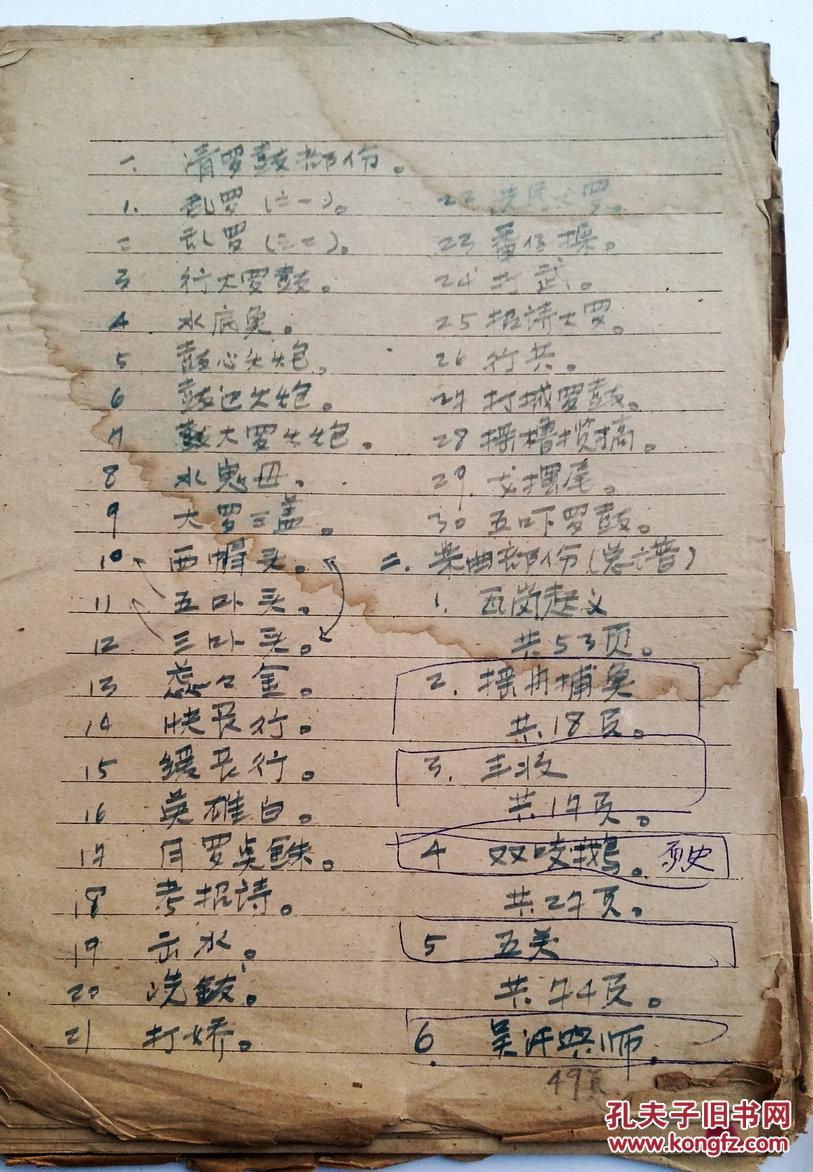 一、清罗鼓部份。
1. 乱罗(之一)。
二 乱罗(之二)。
3 行大罗鼓。
4 水底鱼。
5 鼓心火炮。
6 鼓边火炮。
7 鼓大罗火炮。
8 水鬼毌。
9 大罗三盖。
10 西帽头。
11 五卟头。
12 三卟头。
13 金。
14 快长行。
15 缓长行。
16 英雄白。
17 月罗
18 考招诗。
19 击水。
20 洗鈸。
21 打娇。
22 大罗。
23 番仔操。
24 打武。
25 招诗大罗。
26 行兵。
27 打城罗鼓。
28 摇橹
29. 摆尾。
30 五吓罗鼓。
二. 乐曲部份(总谱)
1. 瓦岗起义
共53页。
2. 摇舟捕鱼
共18页。
3. 丰收
共17页。
4 双咬鹅。
共27页。
5 五关
共74页。
6. 吴汗兴师.
49页
孔夫子旧书网
www.kongfz.com